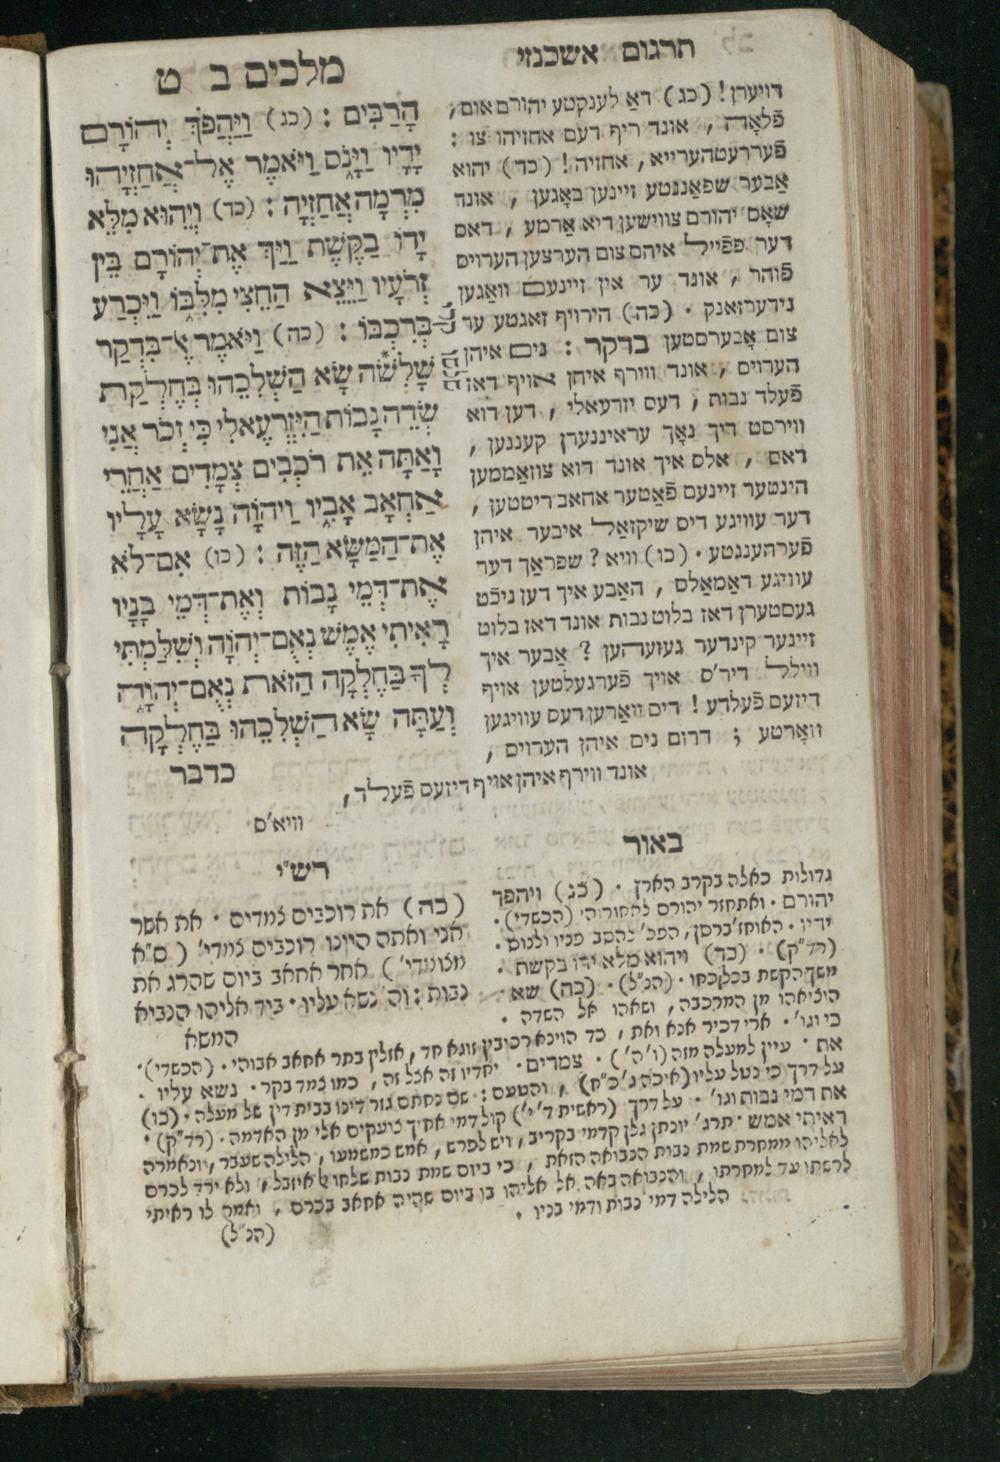 תרגום אשכנזי
מלכים ב ט
דויערן! (כג) דאַ לענקטע יהורם אום,
פֿלאָדה, אונד ריף דעם אחזיהו צו:
פֿעררעטהערייא, אחזיה! (כד) יהוא
אַבער שפאַננטע זיינען באָגען, אונד
שאָס יהורם צווישען דיא אַרמע, דאס
דער פפֿייל איהם צום הערצען הערויס
פֿוהר, אונד ער אין זיינעם וואַגען
נידערזאנק. (כה) הירויף זאגטע ער
צום אָבערסטען בדקר: נים איהן
הערויס, אונד ווירף איהן אויף דאז
פֿעלד נבות, דעס יזרעאלי, דען דוא
ווירסט דיך נאָך עראיננערן קעננען,
דאס, אלס איך אונד דוא צוזאממען
הינטער זיינעם פֿאַטער אחאב ריטטען,
דער עוויגע דיס שיקזאַל איבער איהן
פֿערהענגטע. (כו) וויא? שפראַך דער
עוויגע דאַמאַלס, האַבע איך דען ניכֿט
געסטערן דאז בלוט נבות אונד דאז בלוט
זיינער קינדער געזעהען? אַבער איך
ווילל דיר'ס אויך פֿערגעלטען אויף
דיזעם פֿעלדע! דיס וואַרען דעס עוויגען
וואָרטע; דרום נים איהן הערויס,
אונד ווירף איהן אויף דיזעם פֿעלד,
וויא'ס
הָרַבִּים: (כג) וַיַּהֲפֹךְ יְהוֹרָם
יָדָיו וַיָּנֹס וַיֹּאמֶר אֶל־אֲחַזְיָהוּ
מִרְמָה אֲחַזְיָה: (כד) וְיֵהוּא מִלֵּא
יָדוֹ בַקֶּשֶׁת וַיַּךְ אֶת־יְהוֹרָם בֵּין
זְרֹעָיו וַיֵּצֵא הַחֵצִי מִלִּבּוֹ וַיִּכְרַע
בְּרִכְבּוֹ: (כה) וַיֹּאמֶר אֶל־בִּדְקַר
שָׁלִשֹׁה שָׂא הַשְׁלִכֵהוּ בְּחֶלְקַת
שְׂדֵה נָבוֹת הַיִּזְרְעֵאלִי כִּי זְכֹר אֲנִי
וָאַתָּה אֵת רֹכְבִים צְמָדִים אַחֲרֵי
אַחְאָב אָבִיו וַיהוָֹה נָשָׂא עָלָיו
אֶת־הַמַּשָּׂא הַזֶּה: (כו) אִם־לֹא
אֶת־דְּמֵי נָבוֹת וְאֶת־דְּמֵי בָנָיו
רָאִיתִי אֶמֶשׁ נְאֻם־יְהוָֹה וְשִׁלַּמְתִּי
לְךָ בַּחֶלְקָה הַזֹּאת נְאֻם־יְהוָֹה
וְעַתָּה שָׂא הַשְׁלִכֵהוּ בַּחֶלְקָה
כדבר
באור
גדולות כאלה בקרב הארץ. (כג) ויהפך
יהורם. ואתחזר יהורם לאחורוהי (הכשדי).
ידיו. האוחז׳ ברסן, הפכ׳ להסב פניו ולנוס.
(רד״ק). (כד) ויהוא מלא ידו בקשת.
משך הקשת בכל כחו. (הנ״ל). (כה) שא.
הוציאהו מן המרכבה, ושאהו אל השדה.
כי וגו'. ארי דכיר אנא ואת, כד הוינא רכובין זוגא חד, אזלין בתר אחאב אבוהי. (הכשדי).
את. עיין למעלה מזה (ו' ה'). צמדים. יחדיו זה אצל זה, כמו צמד בקר. נשא עליו.
על דרך כי נטל עליו (איכה ג' כ״ח), והטעם: שם נחתם גזר דינו בבית דין של מעלה. (כו)
את דמי נבות וגו'. על דרך (ראשית ד' י') קול דמי אחיך צועקים אלי מן האדמה. (רד״ק).
ראיתי אמש. תרג' יונתן גלן קדמי בקריב, ויש לפרש, אמש כמשמעו, הלילה שעבר, ונאמרה
לאליהו ממחרת שמת נבות הנבואה הזאת, כי ביום שמת נבות שלחו ל איזבל, ולא ירד לכרם
לרשתו עד למחרתו, והנבואה באה אל אליהו בו ביום שהיה אחאב בכרם, ואמר לו ראיתי
הלילה דמי נבות ודמי בניו.
(הנ״ל)
רש״י
(כה) את רוכבים צמדים. את אשר
אני ואתה היינו רוכבים צמדי' (ס״א
מצומדי') אחר אחאב ביום שהרג את
נבות: וה' נשא עליו. ביד אליהו הנביא
המשא